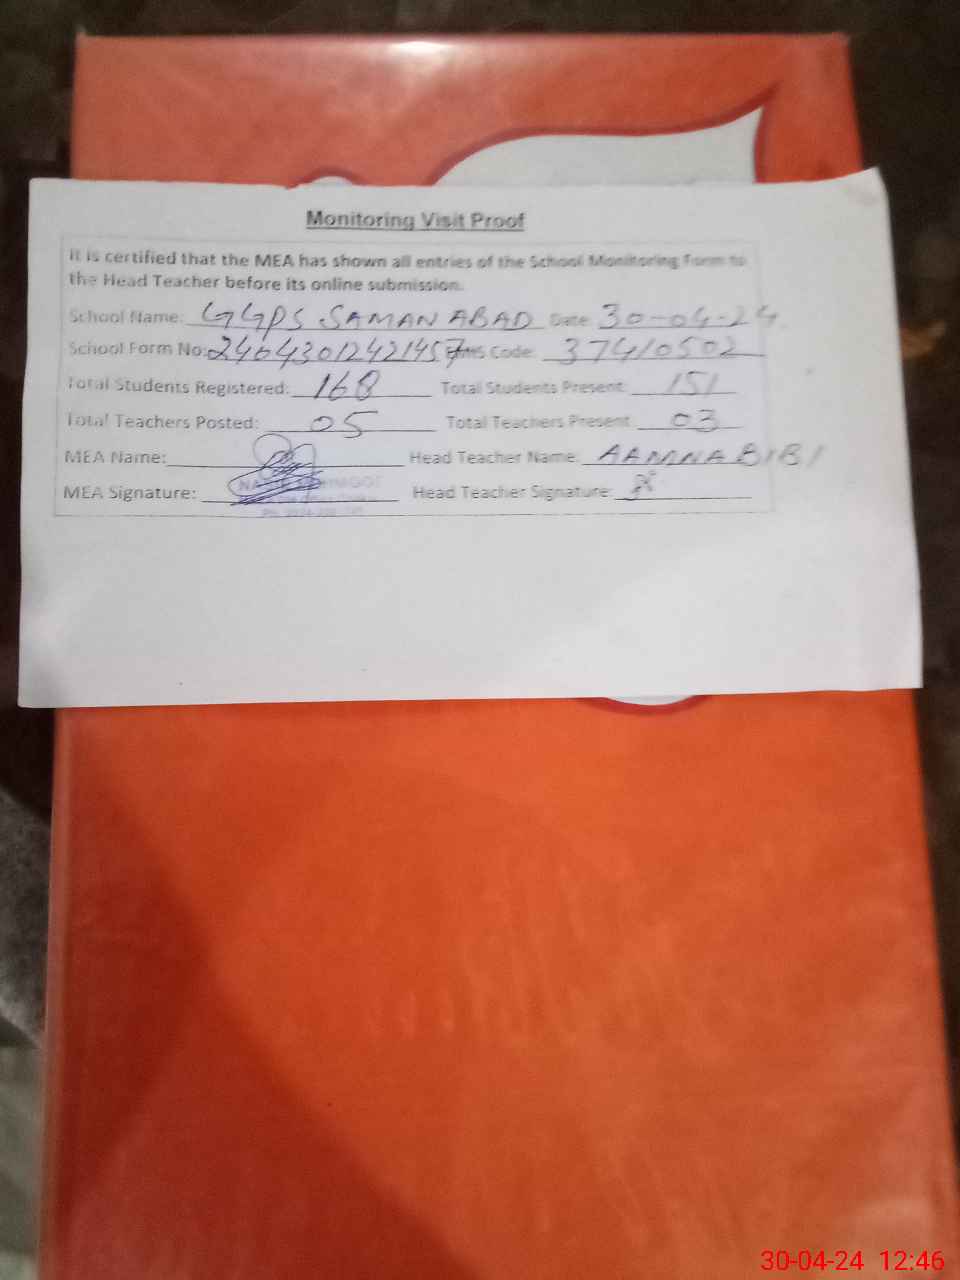 Monitoring Visit Proof
It is certified that the MEA has shown all entries of the School Monitoring Form to
the Head Teacher before its online submission.
School Name: GGPS SAMAN ABAD Date: 30-04-24
School Form No: 24043012421457 EMIS Code: 37410502
Total Students Registered: 168 Total Students Present: 151
Total Teachers Posted: 05 Total Teachers Present: 03
MEA Name: Head Teacher Name: AAMNA BIBI
MEA Signature: Head Teacher Signature:
30-04-24 12:46